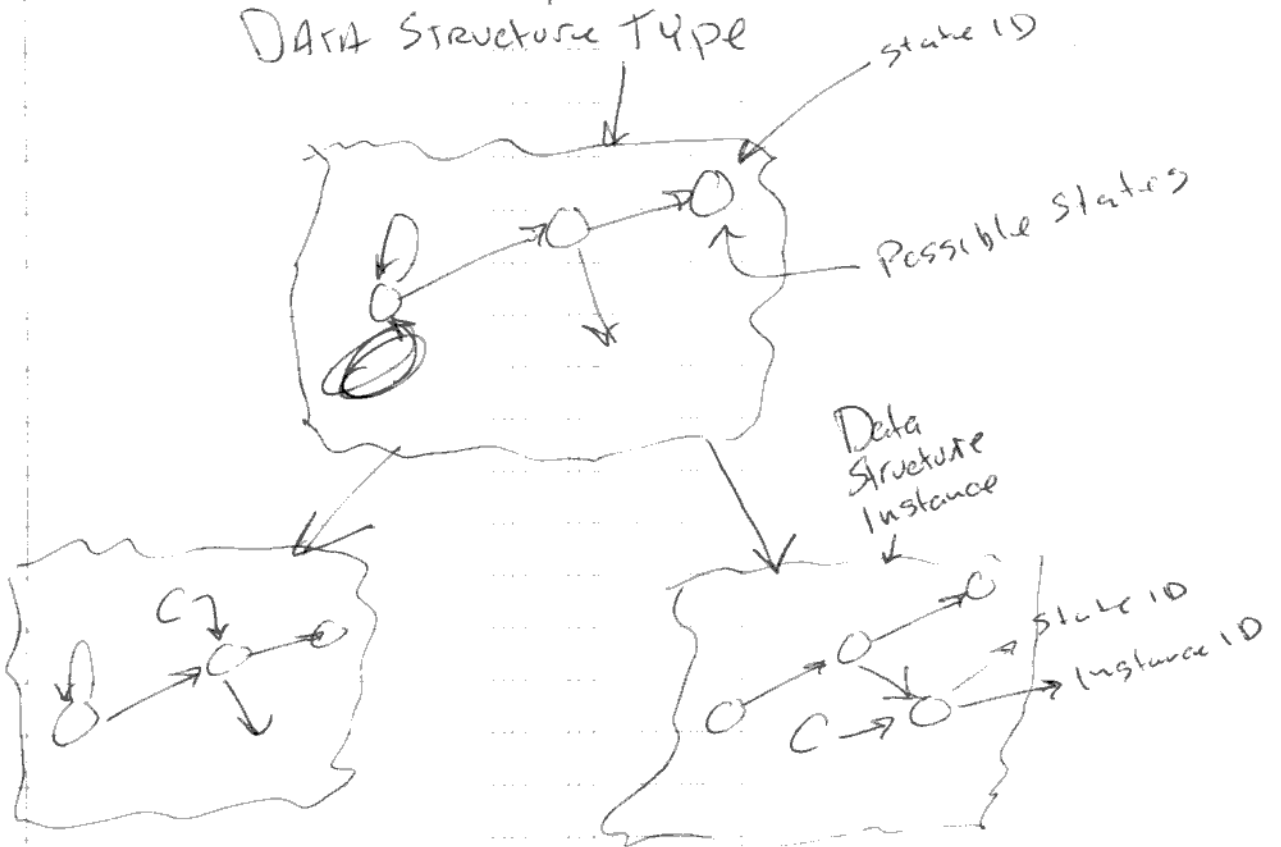 DATA Structure Type
state ID
Possible States
Data
Structure
Instance
C
C
state ID
Instance ID